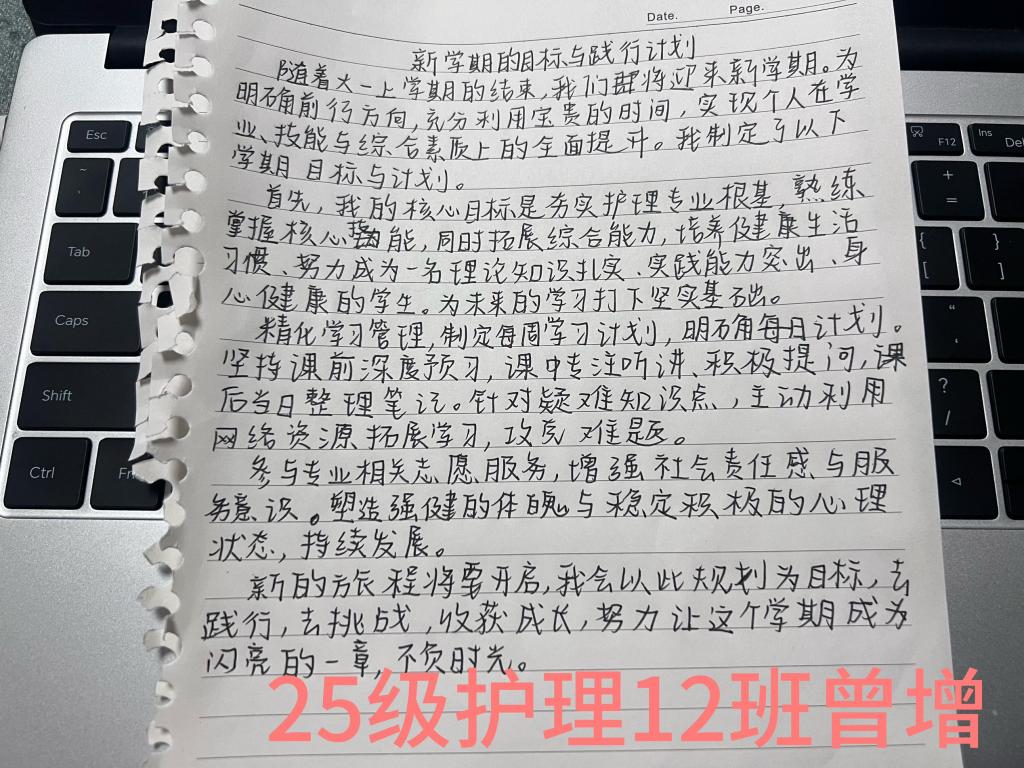 Date. Page.
新学期的目标与践行计划
随着大一上学期的结束,我们即将迎来新学期。为
明确前行方向,充分利用宝贵的时间,实现个人在学
业、技能与综合素质上的全面提升。我制定了以下
学期目标与计划。
首先,我的核心目标是夯实护理专业根基,熟练
掌握核心技能,同时拓展综合能力,培养健康生活
习惯、努力成为一名理论知识扎实、实践能力突出、身
心健康的学生。为未来的学习打下坚实基础。
精化学习管理,制定每周学习计划,明确每日计划。
坚持课前深度预习,课中专注听讲、积极提问,课
后当日整理笔记。针对疑难知识点,主动利用
网络资源拓展学习,攻克难题。
参与专业相关志愿服务,增强社会责任感与服
务意识。塑造强健的体魄与稳定积极的心理
状态,持续发展。
新的旅程将要开启,我会以此规划为目标,去
践行,去挑战,收获成长,努力让这个学期成为
闪亮的一章,不负时光。
25级护理12班曾增
Esc
F12
Ins
Del
~
`
Tab
Caps
Shift
Ctrl
Fn
+
=
{
[
}
]
"
'
?
/